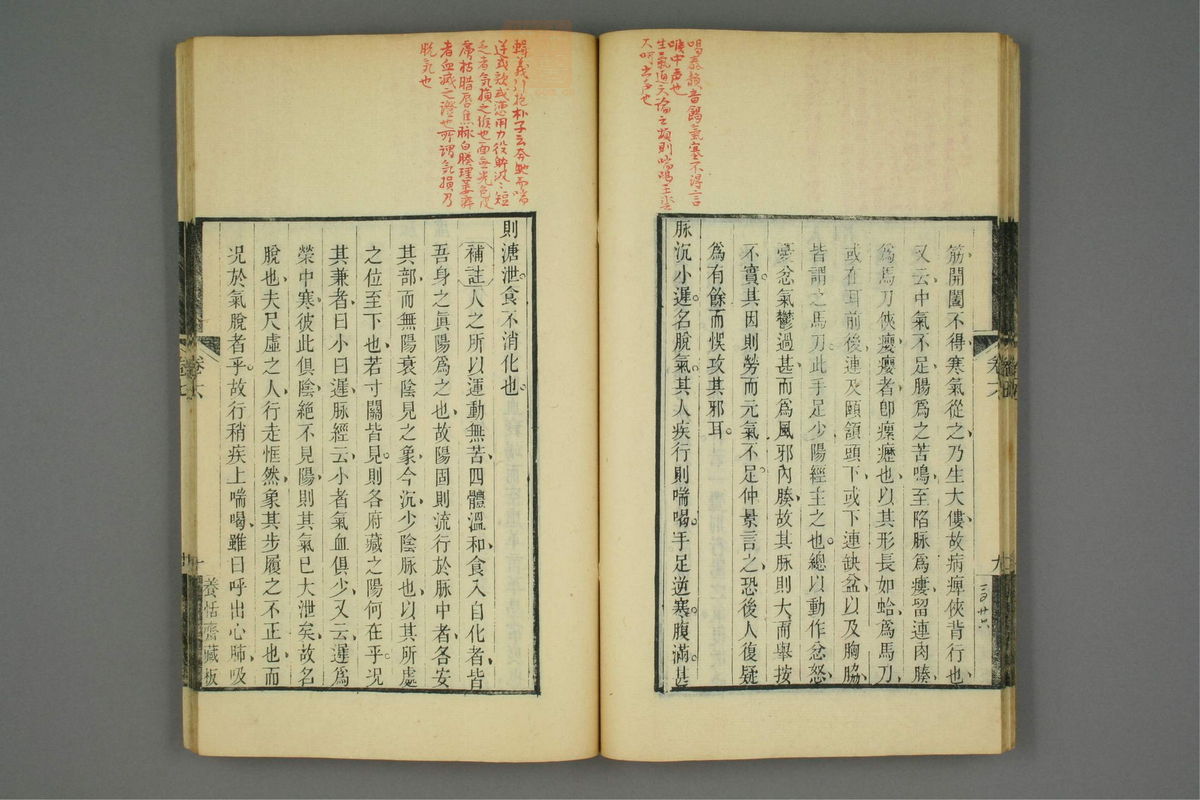 喝泰韻音餲氣塞不得言
喉中声也
生氣通天論之煩則喘喝王
大呵出声也
筋開闔不得寒氣從之乃生大僂故病痺俠背行也
又云中氣不足腸爲之苦鳴至陷脉爲瘻留連肉腠
爲馬刀俠癭癭者卽瘰癧也以其形長如蛤爲馬刀
或在耳前後連及頤頷頭下或下連缺盆以及胸脇
皆謂之馬刀此手足少陽經主之也總以動作忿怒
憂忿氣鬱過甚而爲風邪內腠故其脉則大而舉按
不實其因則勞而元氣不足仲景言之恐後人復疑
爲有餘而悞攻其邪耳
脉沉小遲名脫氣其人疾行則喘喝手足逆寒腹滿甚
卷六
九
輯義引抱朴子云奔馳而喘
逆或欬或懣用力役体汲汲短
乏者気損之候也面無光色皮
膚枯腊唇焦脉白腠理萎瘁
者血减之證也所謂気損乃
脫気也
則溏泄食不消化也
補註人之所以運動無苦四體溫和食入自化者皆
吾身之眞陽爲之也故陽固則流行於脉中者各安
其部而無陽衰陰見之象今沉少陰脉也以其所處
之位至下也若寸關皆見則各府藏之陽何在乎況
其兼者曰小曰遲脉經云小者氣血俱少又云遲爲
榮中寒彼此俱陰絕不見陽則其氣已大泄矣故名
脫也夫尺虛之人行走恇然象其步履之不正也而
況於氣脫者乎故行稍疾上喘喝雖曰呼出心肺吸
卷六
十
養恬齋藏板